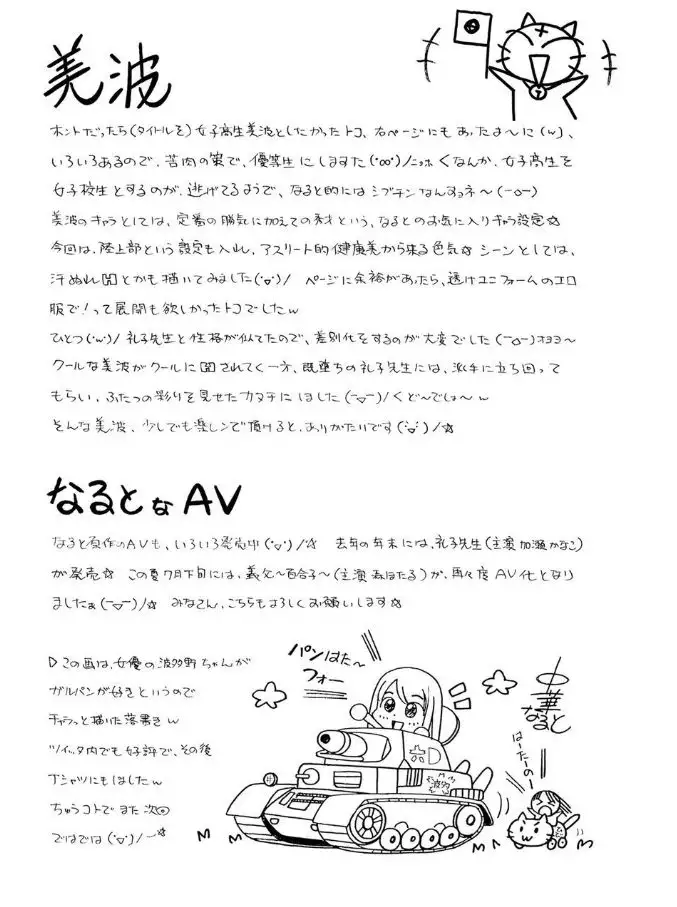 美波
ホントだったら(タイトルを)女子高生美波としたかったトコ、右ページにもあったよーに(ω)、
いろいろあるので、苦肉の策で、優等生にしますた(°∞°)/ニッホ くなんか、女子高生を
女子校生とするのが、逃げてるようで、なると的にはシブチンなんすョネ～(￣△￣)
美波のキャラとしては、定番の勝気に加えての秀才という、なるとのお気に入りキャラ設定☆
今回は、陸上部という設定も入れ、アスリート的健康美から来る色気☆シーンとしては、
汗ぬれ凶とかも描いてみました(°▽°)/ ページに余裕があったら、透けユニフォームのエロ
服で!って展開も欲しかったトコでしたw
ひとつ(°ω°)/礼子先生と性格が似てたので、差別化をするのが大変でした(￣△￣)オヨヨ～
クールな美波がクールに凶されてく一方、既堕ちの礼子先生には、派手に立ち回って
もらい、ふたつの彩りを見せたカタチにしました(￣▽￣)/くど～でしょ～w
そんな美波、少しでも楽しンで頂けると、ありがたいです(°▽°)/☆
なるとなAV
なると原作のAVも、いろいろ発売中(°▽°)/☆ 去年の年末には、礼子先生(主演 加瀬かなこ)
が発売☆ この夏7月下旬には、義父～百合子～(主演 森ほたる)が、再々度AV化となり
ましたぁ(￣▽￣)/☆ みなさん、こちらもよろしくお願いします☆
▷この画は、女優の波多野ちゃんが
ガルパンが好きというので
チャラっと描いた落書きw
ツイッタ内でも好評で、その後
Tシャツにもしましたw
ちゅうコトで また次回
ではでは(°▽°)/―☆
パンはた～
フォー
中華
なると
はーたーのー
波多